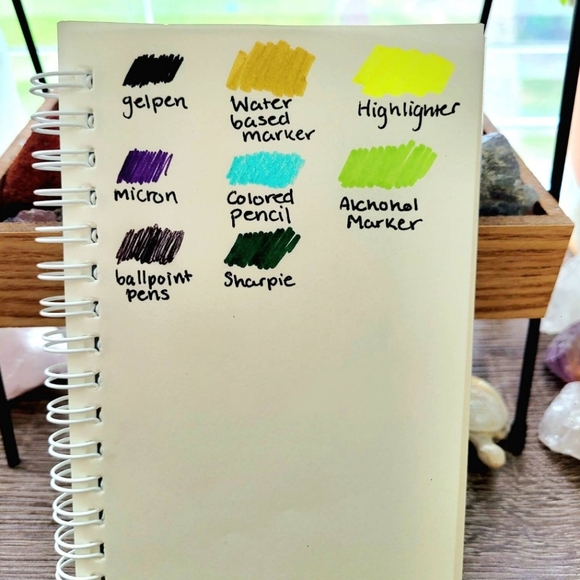 gelpen
Water
based
marker
Highlighter
micron
Colored
pencil
Alchohol
Marker
ballpoint
pens
Sharpie